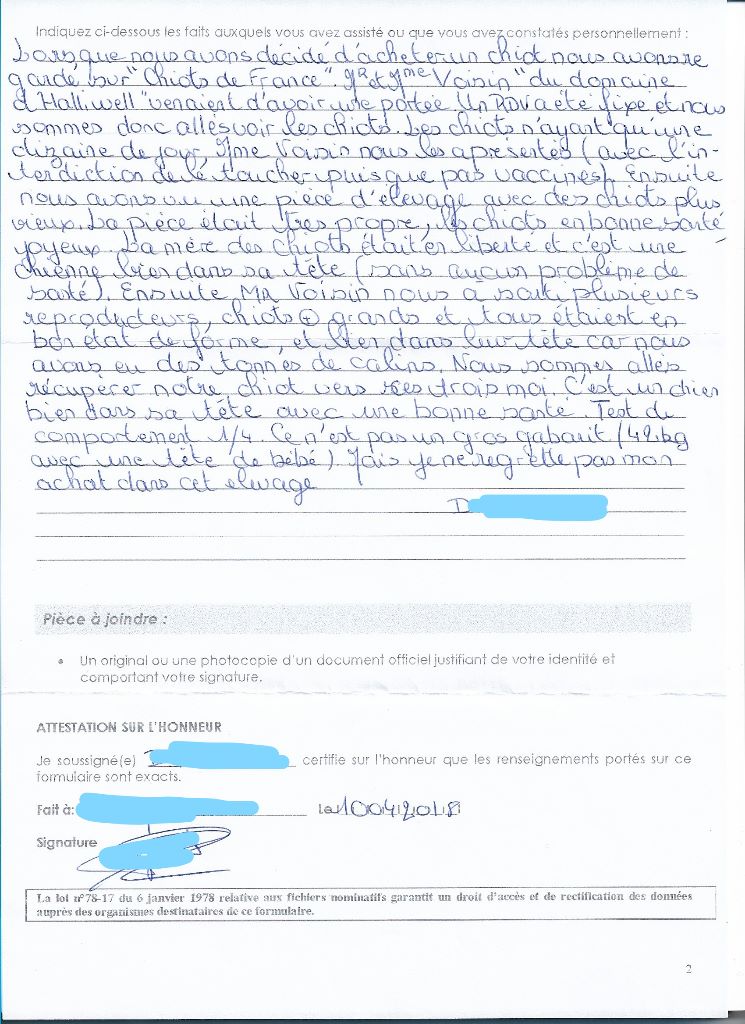 Indiquez ci-dessous les faits auxquels vous avez assisté ou que vous avez constatés personnellement :
Lorsque nous avons décidé d'acheter un chiot nous avons re
gardé sur "Chiots de France". Mr et Mme Voisin "du domaine
d'Halliwell" venaient d'avoir une portée. Un RDV a été fixé et nous
sommes donc allés voir les chiots. Les chiots n'ayant qu'une
dizaine de jour, Mme Voisin nous les a présentés (avec l'in-
terdiction de le toucher puisque pas vaccinés). Ensuite
nous avons vu une pièce d'élevage avec des chiots plus
vieux. La pièce était très propre, les chiots en bonne santé
joyeux. La mère des chiots était en liberté et c'est une
chienne bien dans sa tête (sans aucun problème de
santé). Ensuite Mr Voisin nous a sorti plusieurs
reproducteurs, chiots + grands et tous étaient en
bon état de forme, et bien dans leur tête car nous
avons eu des tonnes de calins. Nous sommes allés
récupérer notre chiot vers ses trois moi. C'est un chien
bien dans sa tête avec une bonne santé. Test de
comportement 1/4. Ce n'est pas un gros gabarit (42kg
avec une tête de bébé). Mais je ne regrette pas mon
achat dans cet elevage
D
Pièce à joindre :
• Un original ou une photocopie d'un document officiel justifiant de votre identité et
comportant votre signature.
ATTESTATION SUR L'HONNEUR
Je soussigné(e) certifie sur l'honneur que les renseignements portés sur ce
formulaire sont exacts.
Fait à: Le 10042018
Signature
La loi n°78-17 du 6 janvier 1978 relative aux fichiers nominatifs garantit un droit d'accès et de rectification des données
auprès des organismes destinataires de ce formulaire.
2